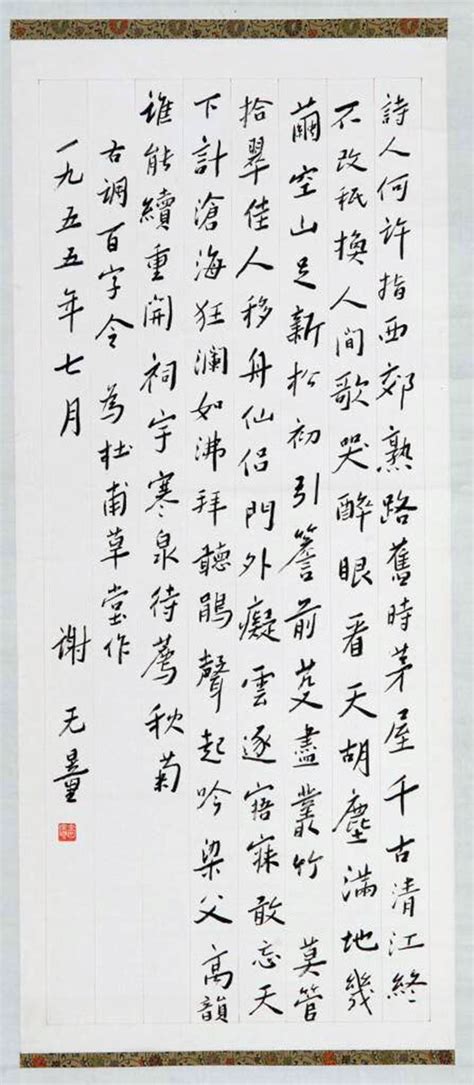 詩人何許指西郊熟路舊時茅屋千古清江終
不改秖換人間歌哭醉眼看天胡塵滿地幾
繭空山足新松初引簷前芟盡叢竹 莫管
拾翠佳人移舟仙侣門外癡雲逐寤寐敢忘天
下計滄海狂澜如沸拜聽鵑聲起吟梁父高韻
誰能續重開祠宇寒泉待薦秋菊
古调百字令 為杜甫草堂作
一九五五年七月 谢无量